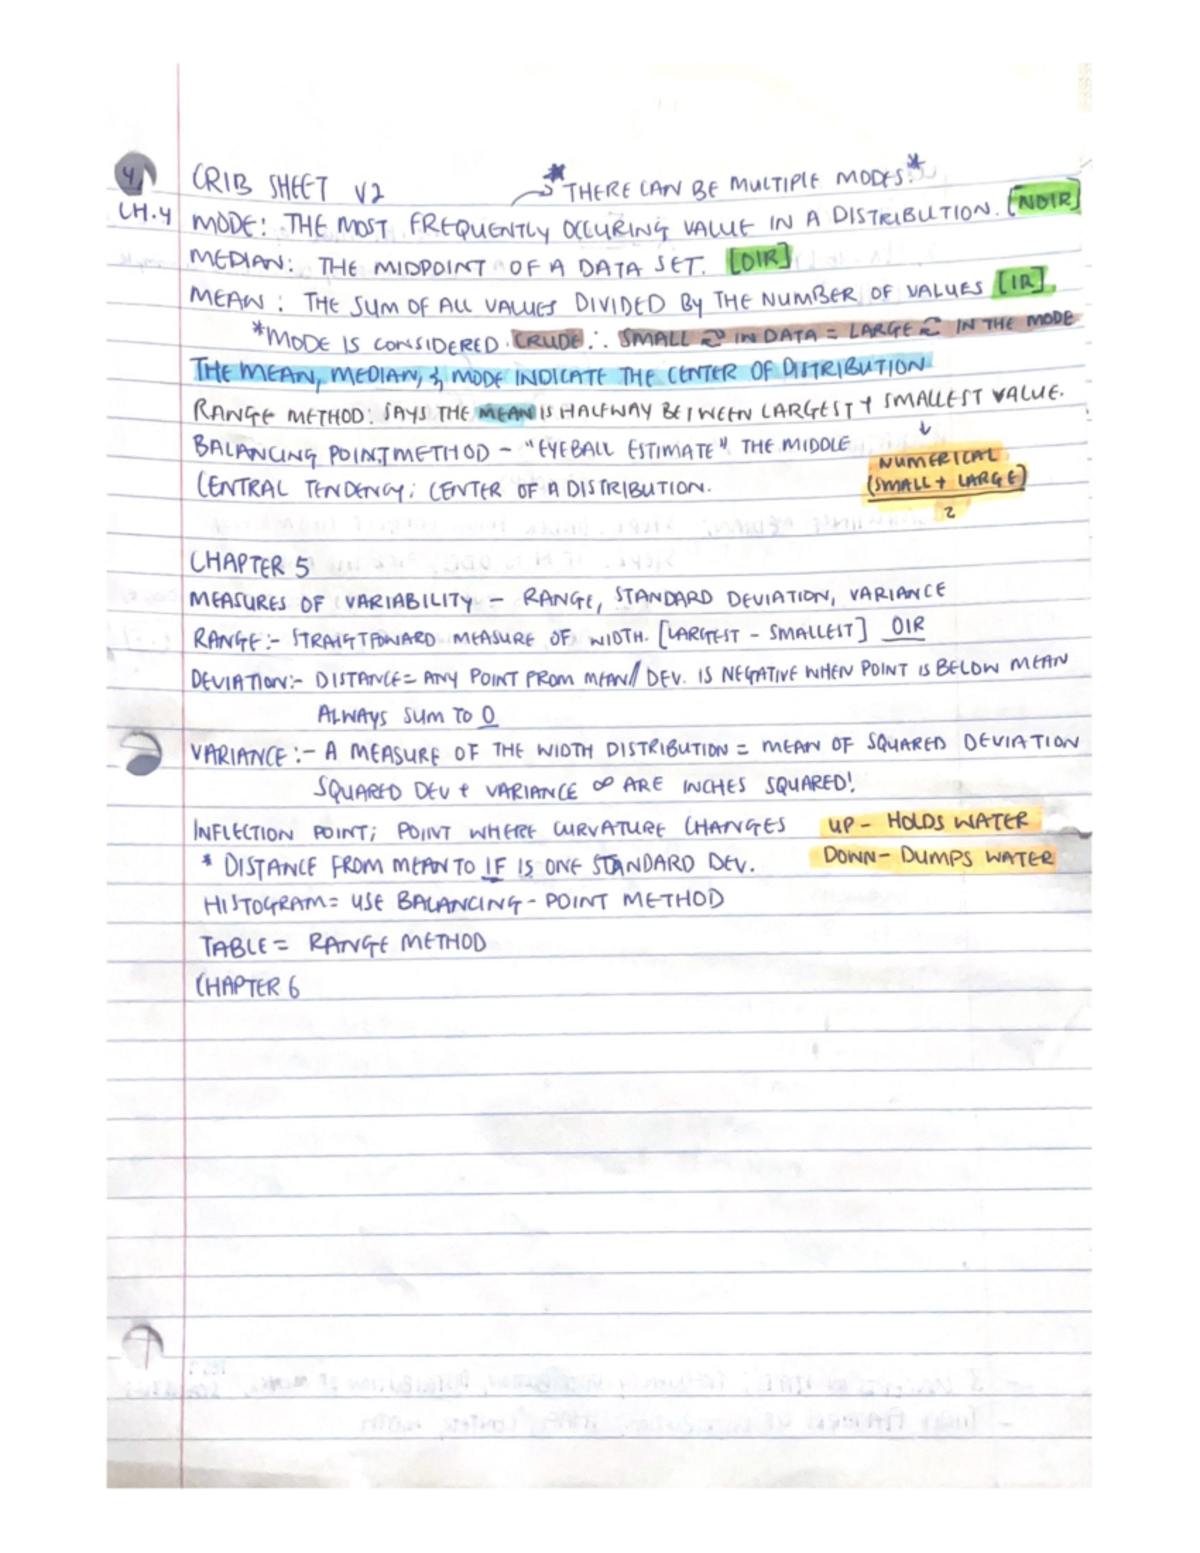 4
CRIB SHEET V2
*THERE CAN BE MULTIPLE MODES.*
CH.4 MODE: THE MOST FREQUENTLY OCCURING VALUE IN A DISTRIBUTION. [NOIR]
MEDIAN: THE MIDPOINT OF A DATA SET. [OIR]
MEAN: THE SUM OF ALL VALUES DIVIDED BY THE NUMBER OF VALUES [IR]
*MODE IS CONSIDERED CRUDE ∴ SMALL IN DATA = LARGE IN THE MODE
THE MEAN, MEDIAN, & MODE INDICATE THE CENTER OF DISTRIBUTION
RANGE METHOD: SAYS THE MEAN IS HALFWAY BETWEEN LARGEST + SMALLEST VALUE.
BALANCING POINT METHOD - "EYEBALL ESTIMATE" THE MIDDLE
↓
NUMERICAL
(SMALL + LARGE)
2
CENTRAL TENDENCY; CENTER OF A DISTRIBUTION.
CHAPTER 5
MEASURES OF VARIABILITY - RANGE, STANDARD DEVIATION, VARIANCE
RANGE:- STRAIGTFOWARD MEASURE OF WIDTH. [LARGEST - SMALLEST] OIR
DEVIATION:- DISTANCE = ANY POINT FROM MEAN// DEV. IS NEGATIVE WHEN POINT IS BELOW MEAN
ALWAYS SUM TO 0
VARIANCE:- A MEASURE OF THE WIDTH DISTRIBUTION = MEAN OF SQUARED DEVIATION
SQUARED DEV + VARIANCE ∞ ARE INCHES SQUARED!
INFLECTION POINT; POINT WHERE CURVATURE CHANGES
UP - HOLDS WATER
DOWN - DUMPS WATER
* DISTANCE FROM MEAN TO IF IS ONE STANDARD DEV.
HISTOGRAM = USE BALANCING - POINT METHOD
TABLE = RANGE METHOD
CHAPTER 6